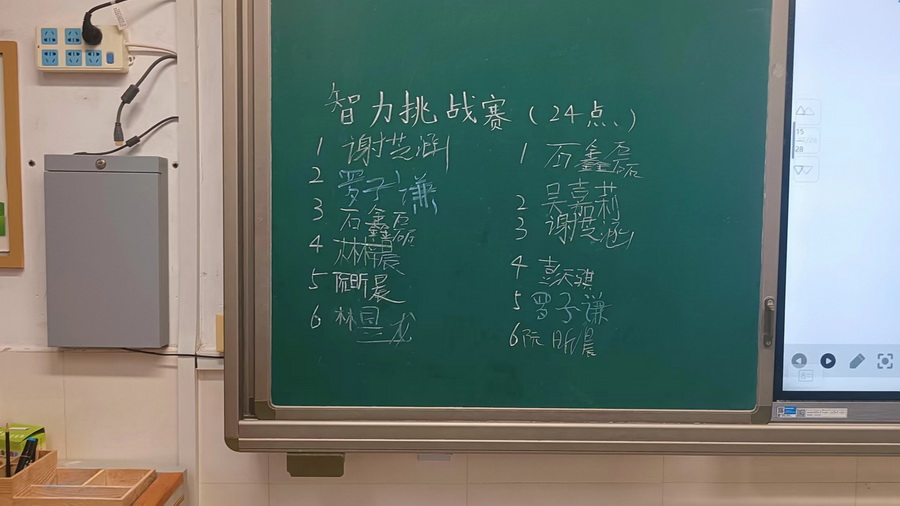 智力挑战赛（24点、）
1 谢芷涵
2 罗子谦
3 石鑫磊
4 林晨
5 阮昕晨
6 林昱龙
1 石鑫磊
2 吴嘉莉
3 谢芷涵
4 彭天骐
5 罗子谦
6 阮昕晨
15
28